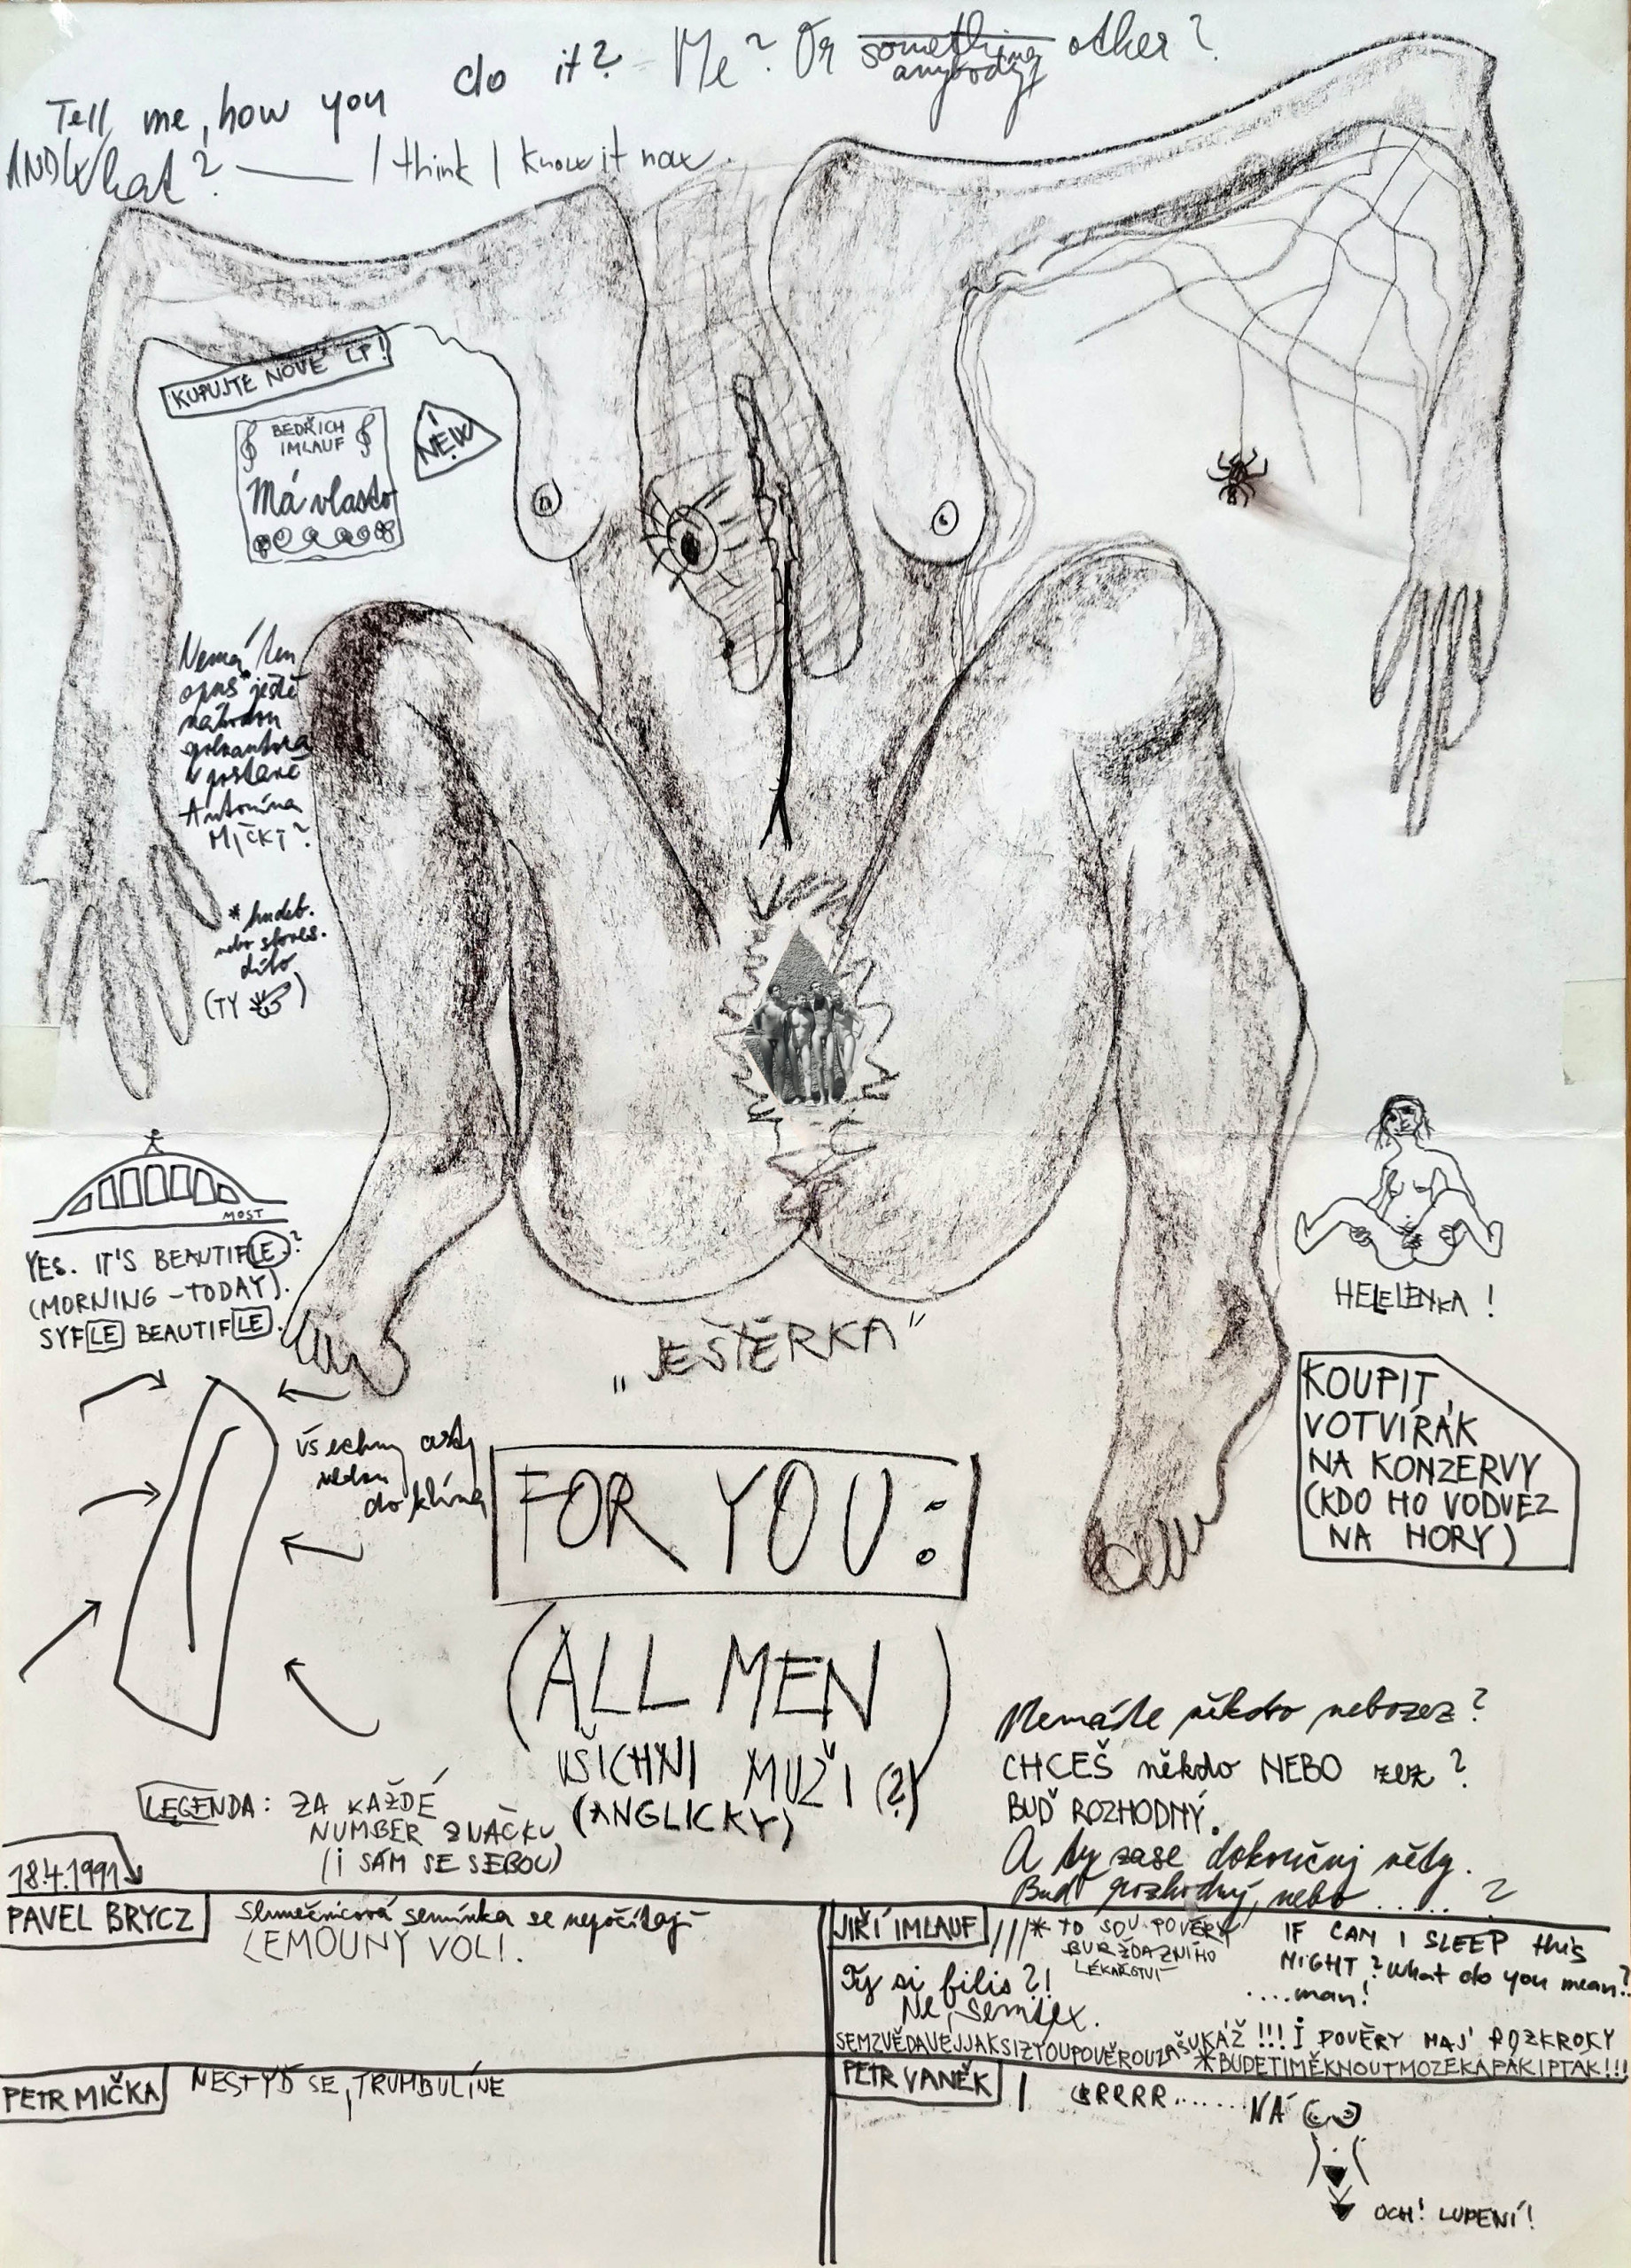 Tell me, how you do it? – Me? Or something anybody other?
AND What? — I think I know it now.
KUPUJTE NOVÉ LP!
BEDŘICH
IMLAUF
Má vlasto
NEW
Nemá ten
opus* ještě
náhodou
spoluautora
v postavě
Antonína
MIČKY?
* hudeb.
nebo sloves.
dílo
(TY )
MOST
YES. IT'S BEAUTIFLE?
(MORNING – TODAY).
SYFLE BEAUTIFLE.
HELELENKA!
„JEŠTĚRKA“
KOUPIT
VOTVÍRÁK
NA KONZERVY
(KDO HO VODVEZ
NA HORY)
všechny cesty
vedou
do klína
FOR YOU:
(ALL MEN)
VŠICHNI MUŽI (?)
(ANGLICKY)
Nemáte někdo nebozez?
CHCEŠ někdo NEBO zez?
BUĎ ROZHODNÝ.
A ty zase dokončuj věty.
Buď rozhodný, nebo ..... ?
LEGENDA: ZA KAŽDÉ
NUMBER ZNAČKU
(I SÁM SE SEBOU)
18.4.1991
PAVEL BRYCZ
Slunečnicová semínka se nepočítají
LEMOUNY VOL!.
JIŘÍ IMLAUF
///* TO SOU POVĚRY
BURŽOAZNÍHO
LÉKAŘSTVÍ
IF CAN I SLEEP this
NIGHT? What do you mean?
....man!
Ty si filis?!
Ne, Semtex.
SEMZVĚDAVEJJAKSIZTYOUPOVĚROUZAŠUKÁŽ!!! I POVĚRY MAJ' ROZKROKY
*BUDETIMĚKNOUTMOZEKAPAKIPTAK!!!
PETR MIČKA
NESTYĎ SE, TRUMBULÍNE
PETR VANĚK
| GRRRR.......NÁ
OCH! LUPENÍ!